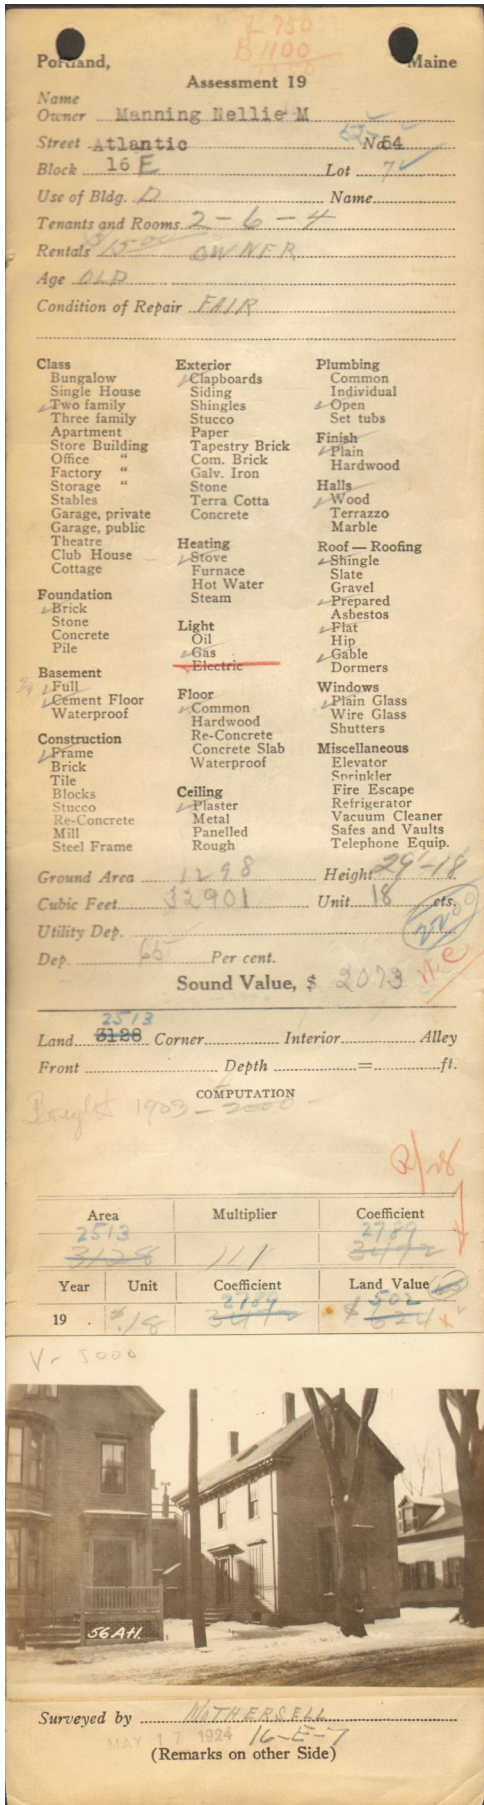 L 750
B 1100
Portland, Maine
Assessment 19
Name
Owner Manning Nellie M
Street Atlantic No. 52-54
Block 16 E Lot 7
Use of Bldg. D Name
Tenants and Rooms 2-6-4
Rentals 15.00 OWNER
Age OLD
Condition of Repair FAIR
Class
Bungalow
Single House
✓ Two family
Three family
Apartment
Store Building
Office "
Factory "
Storage "
Stables
Garage, private
Garage, public
Theatre
Club House
Cottage
Foundation
✓ Brick
Stone
Concrete
Pile
Basement
✓ Full
✓ Cement Floor
Waterproof
Construction
✓ Frame
Brick
Tile
Blocks
Stucco
Re-Concrete
Mill
Steel Frame
Exterior
✓ Clapboards
Siding
Shingles
Stucco
Paper
Tapestry Brick
Com. Brick
Galv. Iron
Stone
Terra Cotta
Concrete
Heating
✓ Stove
Furnace
Hot Water
Steam
Light
Oil
✓ Gas
Electric
Floor
✓ Common
Hardwood
Re-Concrete
Concrete Slab
Waterproof
Ceiling
✓ Plaster
Metal
Panelled
Rough
Plumbing
Common
Individual
✓ Open
Set tubs
Finish
✓ Plain
Hardwood
Halls
✓ Wood
Terrazzo
Marble
Roof — Roofing
✓ Shingle
Slate
Gravel
✓ Prepared
Asbestos
✓ Flat
Hip
✓ Gable
Dormers
Windows
✓ Plain Glass
Wire Glass
Shutters
Miscellaneous
Elevator
Sprinkler
Fire Escape
Refrigerator
Vacuum Cleaner
Safes and Vaults
Telephone Equip.
Ground Area 1298 Height 29'-18
Cubic Feet 32901 Unit 18 cts.
Utility Dep. 2200
Dep. 65 Per cent. N.C.
Sound Value, $ 2073
2513
Land 3128 Corner Interior Alley
Front Depth = ft.
COMPUTATION
Bought 1903 - 2000 -
Area Multiplier Coefficient
2513 2789
3128 111 3472
Year Unit Coefficient Land Value
2789 502
19 . $.18 3472 $ 624
V- 3000
56 Atl.
Surveyed by MOTHERSELL
MAY 17 1924 16-E-7
(Remarks on other Side)